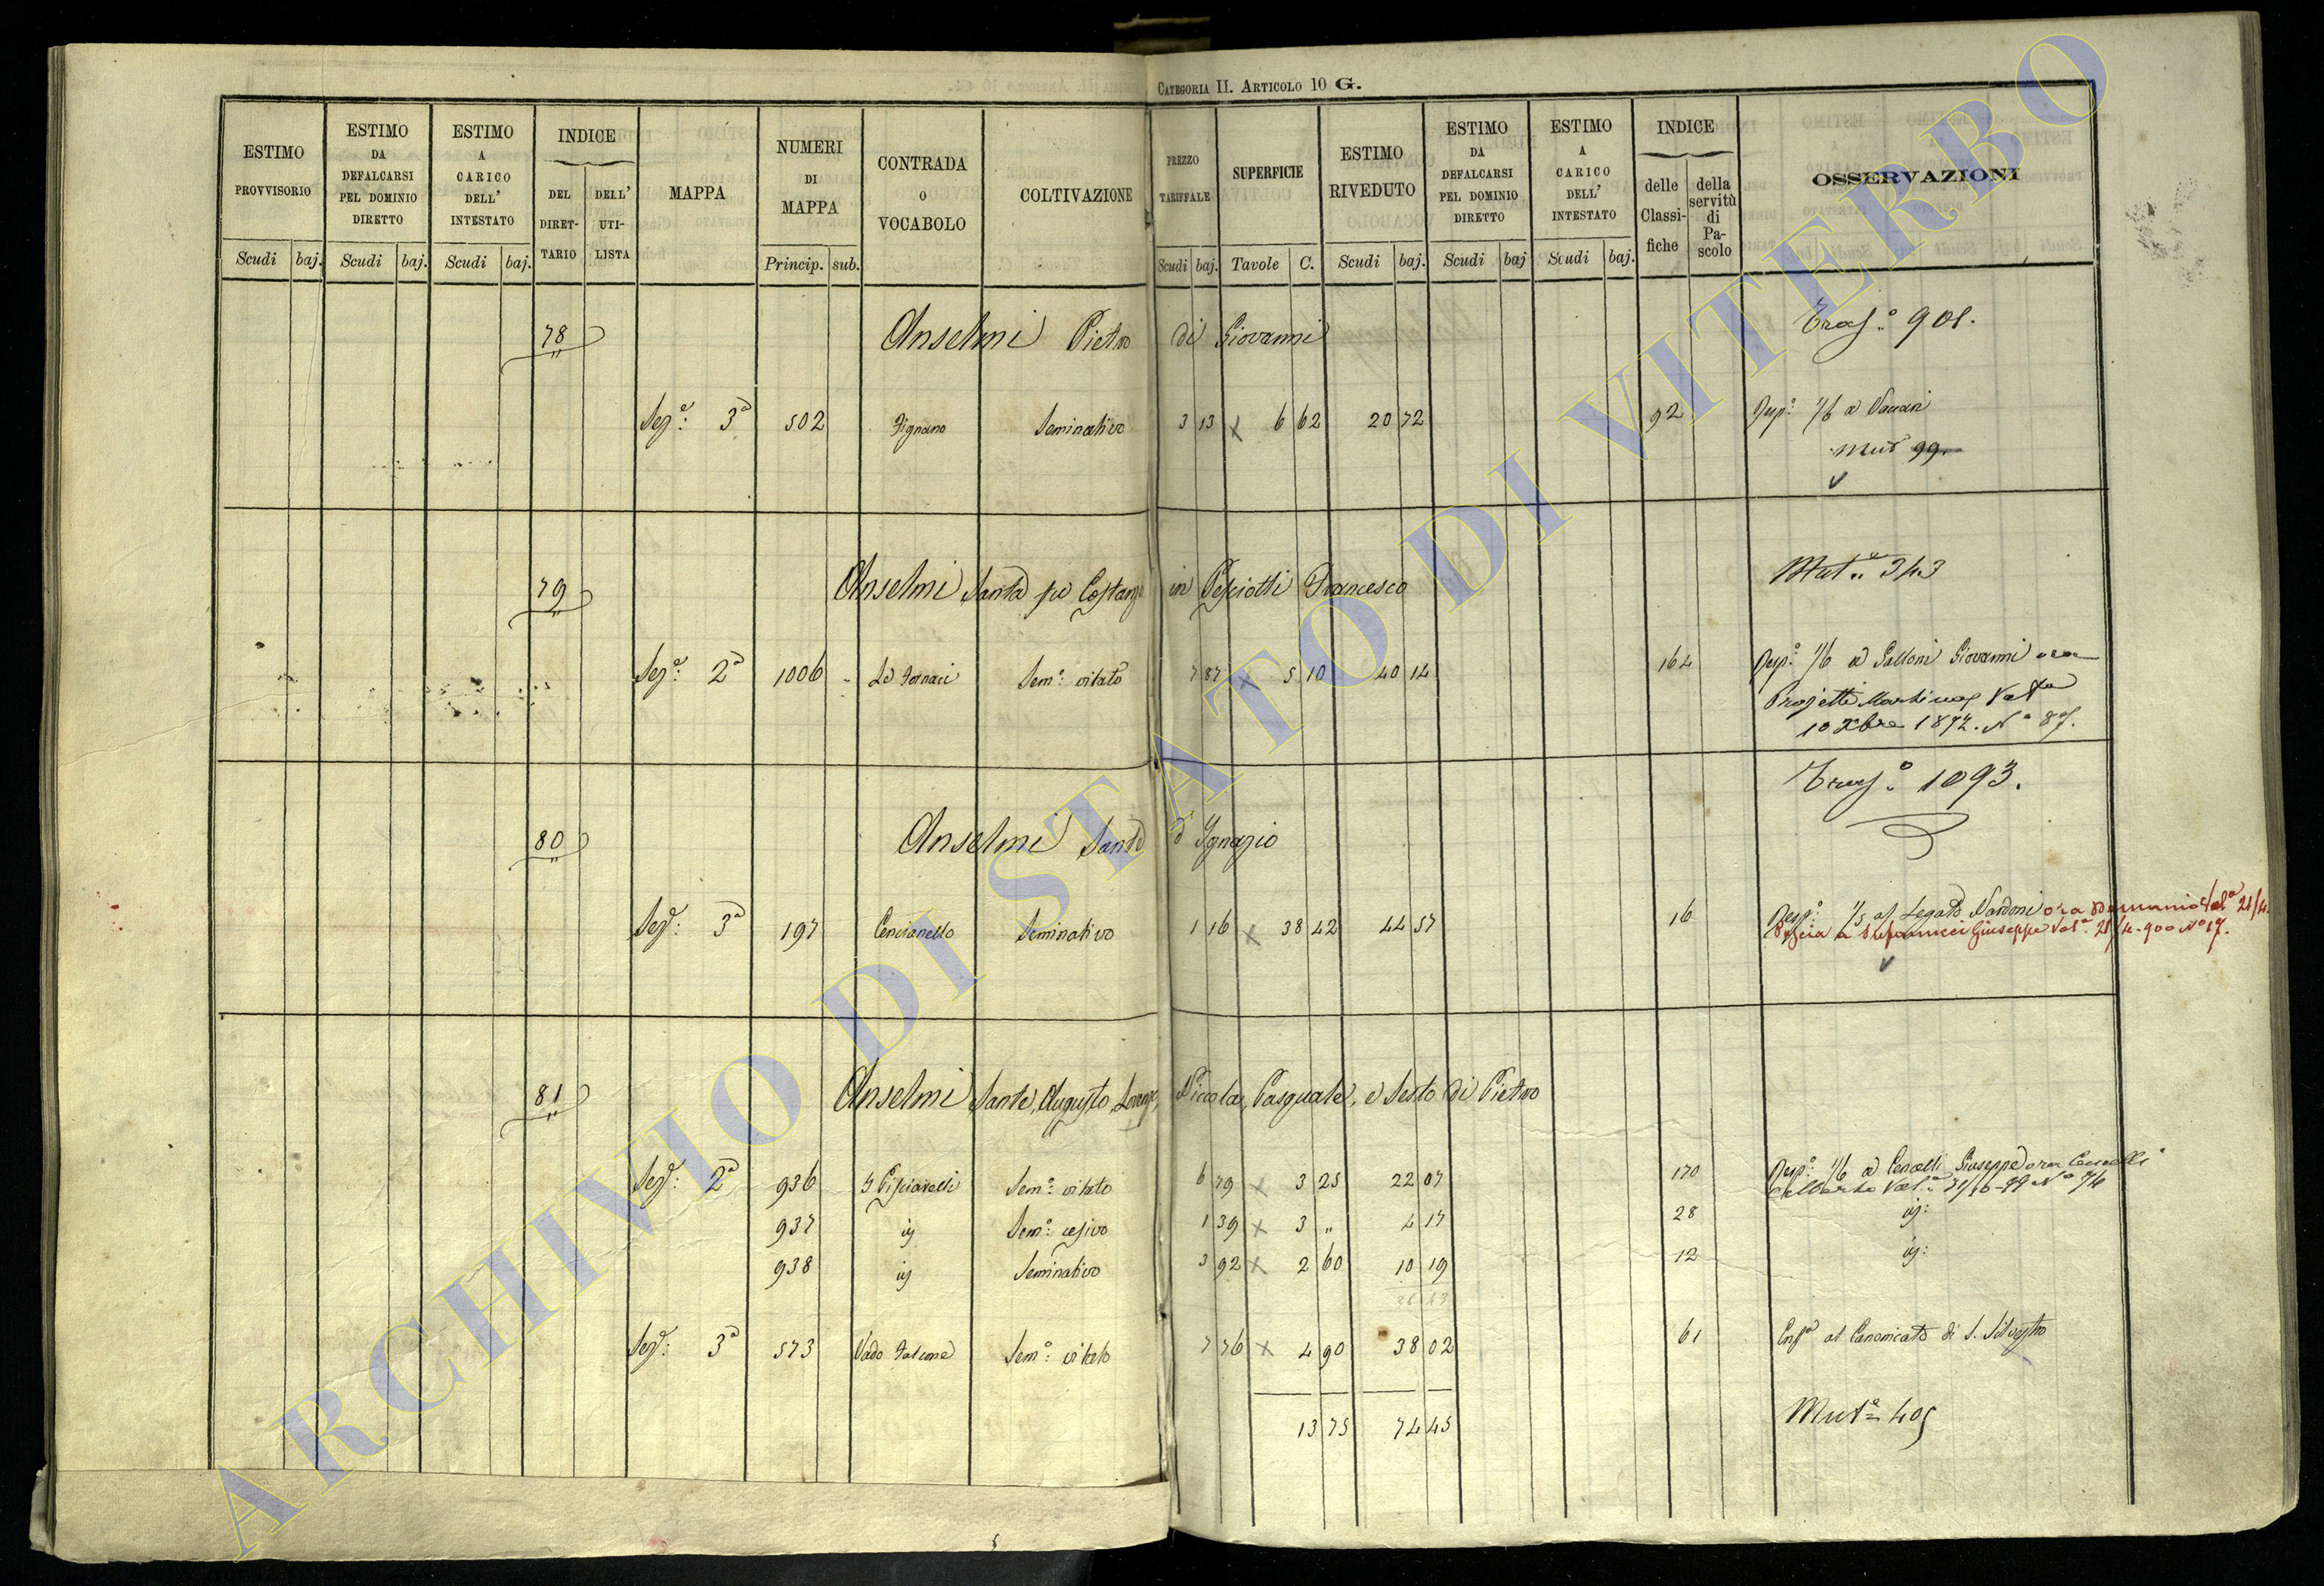 CATEGORIA II. ARTICOLO 10 G.
ESTIMO PROVVISORIO Scudi baj.
ESTIMO DA DEFALCARSI PEL DOMINIO DIRETTO Scudi baj.
ESTIMO A CARICO DELL' INTESTATO Scudi baj.
INDICE DEL DIRET- TARIO DELL' UTI- LISTA
MAPPA
NUMERI DI MAPPA Princip. sub.
CONTRADA O VOCABOLO
COLTIVAZIONE
PREZZO TARIFFALE Scudi baj.
SUPERFICIE Tavole C.
ESTIMO RIVEDUTO Scudi baj.
ESTIMO DA DEFALCARSI PEL DOMINIO DIRETTO Scudi baj
ESTIMO A CARICO DELL' INTESTATO Scudi baj.
INDICE delle Classi- fiche della servitù di Pa- scolo
OSSERVAZIONI
78 Anselmi Pietro di Giovanni Trasº 901.
Sezº: 3ª 502 Fignano Seminativo 3 13 x 6 62 20 72 92 Respº: 1/6 a
Mutº 99
79 Anselmi Santa fu Costanzo in Pesciotti Francesco Mutº 343
Sezº: 2ª 1006 Le Fornaci Semº: vitato 7 87 x 5 10 40 14 164 Respº: 1/6 a Galloni Giovanni ora
Projetti Voltª
10 Xbre 1872. Nº 87.
Trasº 1093.
80 Anselmi Sante d'Ignazio
Sezº: 3ª 197 Cencianello Seminativo 1 16 x 38 42 44 57 16 Respº: 1/5 al Legato Nardoni ora Demanio Volª 21/4.
a Giuseppe Volª 21/4-900 Nº 17.
81 Anselmi Sante, Augusto, Lorenzo, Niccola, Pasquale, e Sesto di Pietro
Sezº: 2ª 936 I Pisciarelli Semº: vitato 6 79 x 3 25 22 07 170 Respº: 1/6 a Cencelli Giuseppe ora Cencelli
Alberto Volª Nº 76
937 id Semº: cesivo 1 39 x 3 " 4 17 28 id:
938 id Seminativo 3 92 x 2 60 10 19 12 id:
36 43
Sezº: 3ª 573 Vado Falcone Semº: vitato 7 76 x 4 90 38 02 61 Enfª al Canonicato di S. Silvestro
13 75 74 45 Mutª 405
ARCHIVIO DI STATO DI VITERBO